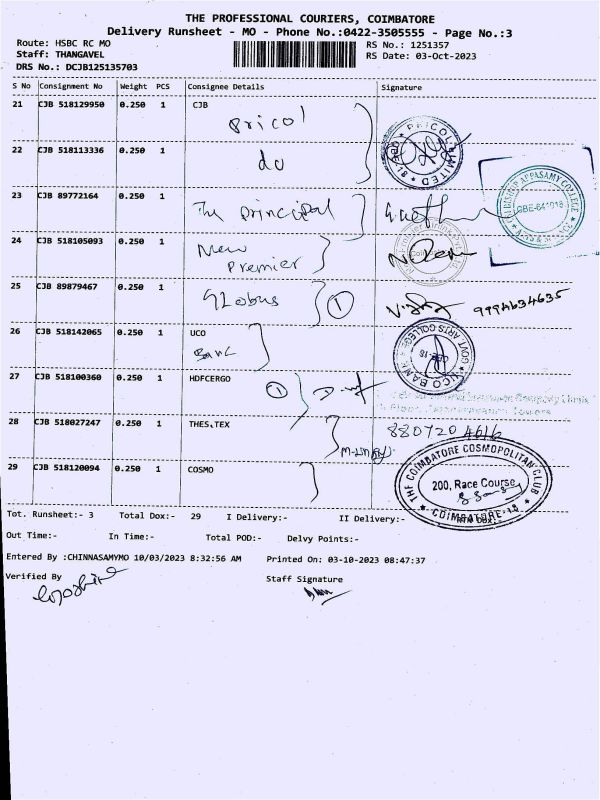 THE PROFESSIONAL COURIERS, COIMBATORE
Delivery Runsheet - MO - Phone No.:0422-3505555 - Page No.:3
Route: HSBC RC MO
Staff: THANGAVEL
DRS No.: DCJB125135703
RS No.: 1251357
RS Date: 03-Oct-2023
S No Consignment No Weight PCS Consignee Details Signature
21 CJB 518129950 0.250 1 CJB
Pricol
PRICOL LIMITED
22 CJB 518113336 0.250 1
do
23 CJB 89772164 0.250 1 The principal
BISHOP APPASAMY COLLEGE
CBE-641018
24 CJB 518105093 0.250 1 New
Premier
25 CJB 89879467 0.250 1 GLobus 1
26 CJB 518142065 0.250 1 UCO
Bank
UCO BANK GOVT ARTS COLLEGE
27 CJB 518100360 0.250 1 HDFCERGO 1
28 CJB 518027247 0.250 1 THES,TEX
880720 4616
29 CJB 518120094 0.250 1 COSMO
THE COIMBATORE COSMOPOLITAN CLUB
200, Race Course,
COIMBATORE-18
Tot. Runsheet:- 3 Total Dox:- 29 I Delivery:- II Delivery:-
Out Time:- In Time:- Total POD:- Delvy Points:-
Entered By :CHINNASAMYMO 10/03/2023 8:32:56 AM Printed On: 03-10-2023 08:47:37
Verified By Staff Signature